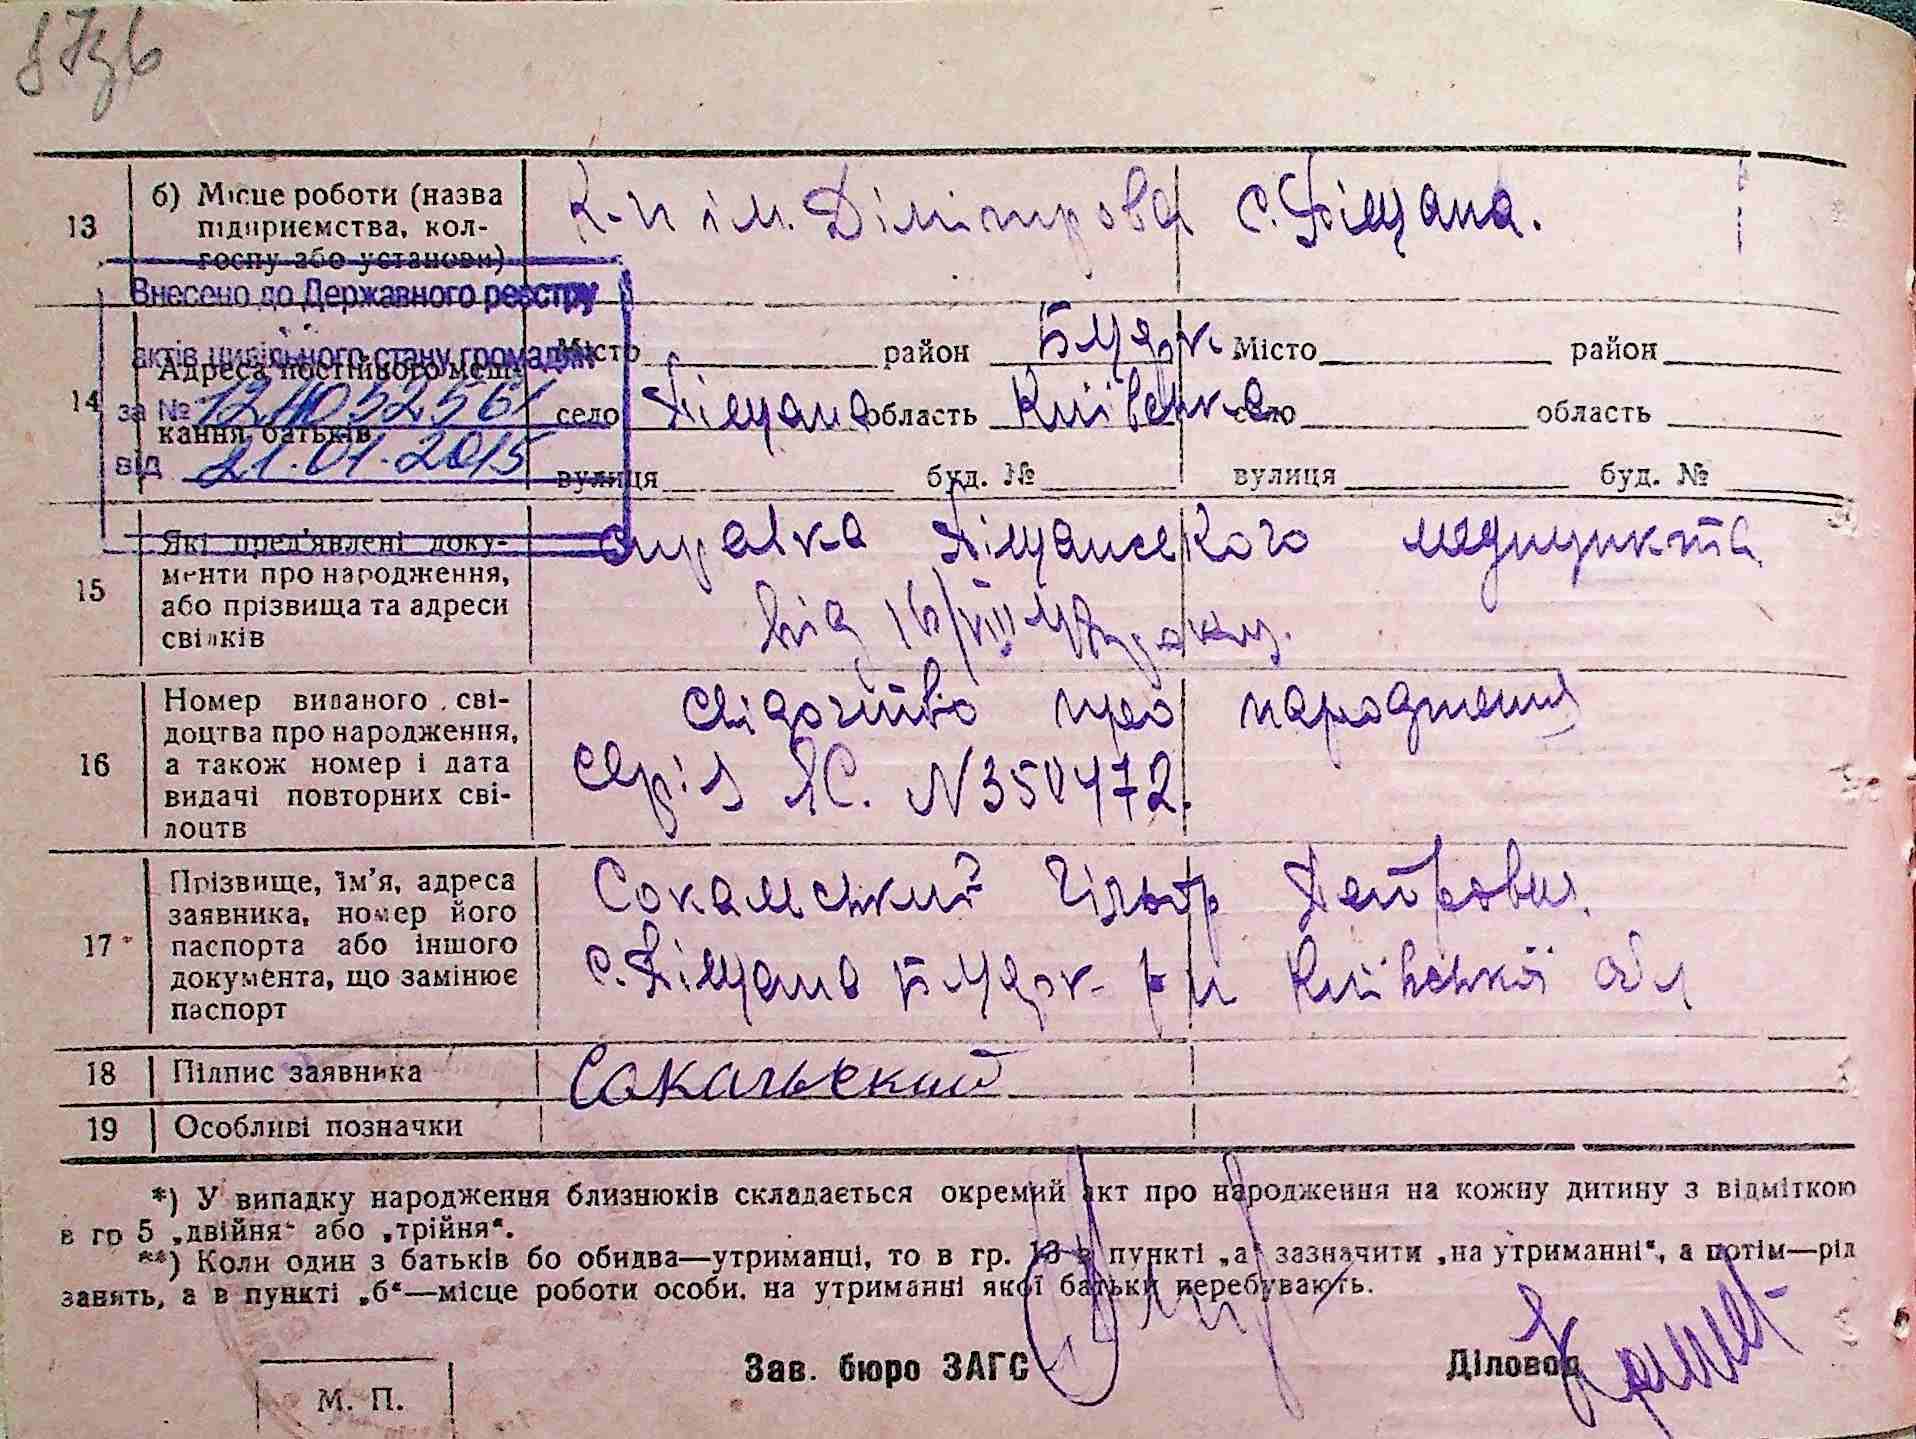 13
б) Місце роботи (назва
підприємства, кол-
госпу або установи)
К-п ім. Дімітрова с. Піщана.
Внесено до Державного реєстру
актів цивільного стану громадян
за № 12405256
від 21.01.2015
14
Адреса постійного меш-
кання батьків
Місто район Б Црк. Місто район
село Піщана область Київська село область
вулиця буд. № вулиця буд. №
15
Які пред'явлені доку-
менти про народження,
або прізвища та адреси
свідків
справка Піщанського медпункта
від 16/VIII року.
16
Номер виданого сві-
доцтва про народження,
а також номер і дата
видачі повторних сві-
доцтв
свідоцтво про народження
серія ЯС. N 350472.
17
Прізвище, ім'я, адреса
заявника, номер його
паспорта або іншого
документа, що замінює
паспорт
Сокальський Петрович.
с. Піщана Б Црк. р-н Київської обл
18
Підпис заявника
Сокальский
19
Особливі позначки
*) У випадку народження близнюків складається окремий акт про народження на кожну дитину з відміткою
в гр 5 „двійня“ або „трійня“.
**) Коли один з батьків бо обидва—утриманці, то в гр. 13 в пункті „а“ зазначити „на утриманні“, а потім—рід
занять, а в пункті „б“—місце роботи особи, на утриманні якої батьки перебувають.
Зав. бюро ЗАГС
Діловод
М. П.